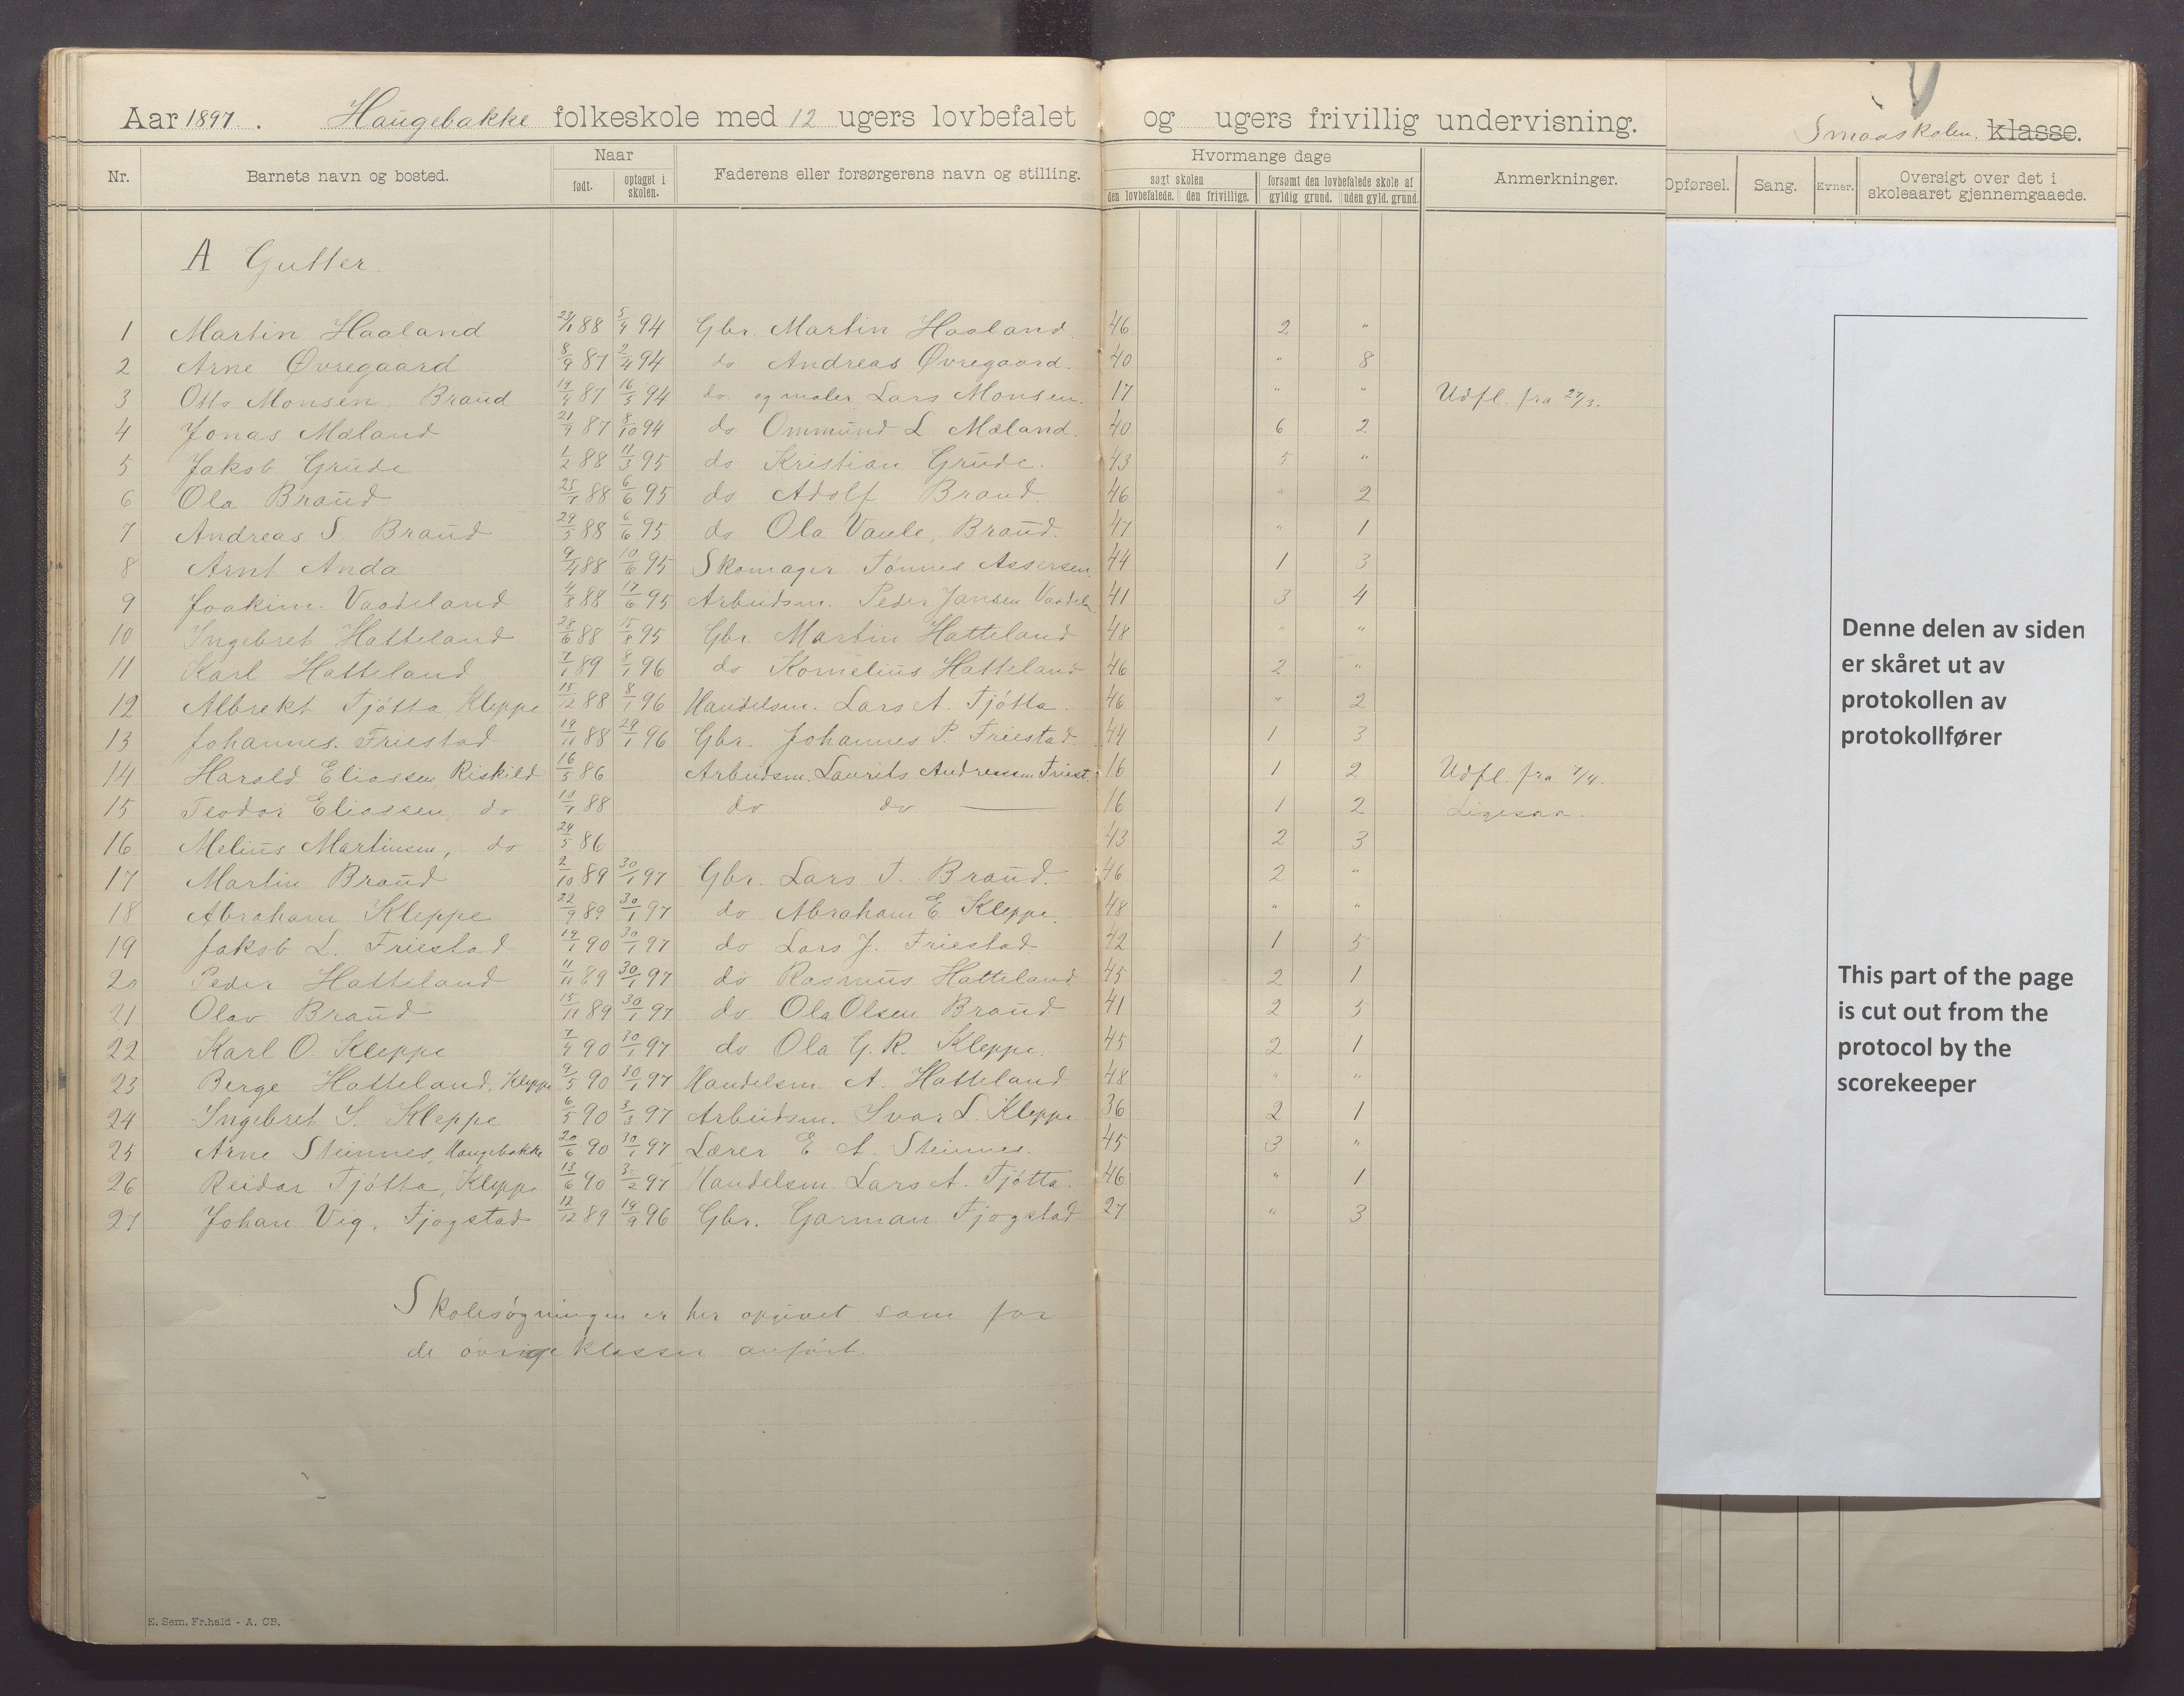 Aar 1897. Haugebakke folkeskole med 12 ugers lovbefalet og ugers frivillig undervisning. Smaaskolen. klasse.
Nr. Barnets navn og bosted. Naar født. optaget i skolen. Faderens eller forsørgerens navn og stilling. Hvormange dage søgt skolen den lovbefalede. den frivillige. forsømt den lovbefalede skole af gyldig grund. uden gyld. grund. Anmerkninger. Opførsel. Sang. Evner. Oversigt over det i skoleaaret gjennemgaaede.
A Gutter.
1 Martin Haaland 23/1 88 5/4 94 Gbr. Martin Haaland 46 2 "
2 Arne Øvregaard 8/9 87 2/4 94 do Andreas Øvregaard. 40 " 8
3 Otto Monsen, Braud 19/4 87 16/5 94 do og maler Lars Monsen. 17 " " Udfl. fra 27/3.
4 Jonas Mæland 21/9 87 8/10 94 do Ommund L Mæland. 40 6 2
5 Jakob Grude 1/2 88 11/3 95 do Kristian Grude. 43 5 "
6 Ola Braud 25/1 88 6/6 95 do Adolf Braud. 46 " 2
7 Andreas S. Braud 29/5 88 6/6 95 do Ola Vaule, Braud. 47 " 1
8 Arnt Anda 9/4 88 10/6 95 Skomager Tønnes Assersen. 44 1 3
9 Joakim Vaadeland 4/8 88 17/6 95 Arbeidsm. Peder Jansen Vaadela. 41 3 4
10 Ingebret Hatteland 28/6 88 15/8 95 Gbr. Martin Hatteland 48 " "
11 Karl Hatteland 7/1 89 8/1 96 do Kornelius Hatteland 46 2 "
12 Albrekt Tjøtta Kleppe 15/12 88 8/1 96 Handelsm. Lars A. Tjøtta. 46 " 2
13 Johannes. Friestad 19/11 88 29/1 96 Gbr. Johannes P. Friestad 44 1 3
14 Harald Eliassen, Riskild 16/5 86 Arbeidsm. Laurits Andreassen Friest. 16 1 2 Udfl. fra 7/4.
15 Teodor Eliassen, do 88 do do 16 1 2 Ligesaa.
16 Melius Martinsen, do 24/5 86 43 2 3
17 Martin Braud 2/10 89 30/1 97 Gbr. Lars T. Braud. 46 2 "
18 Abraham Kleppe 22/9 89 30/1 97 do Abraham E. Kleppe. 48 " "
19 Jakob L. Friestad 19/1 90 30/1 97 do Lars J. Friestad 42 1 5
20 Peder Hatteland 11/11 89 30/1 97 do Rasmus Hatteland 45 2 1
21 Olav Braud 15/11 89 30/1 97 do Ola Olsen Braud 41 2 5
22 Karl O. Kleppe 7/4 90 30/1 97 do Ola G. R. Kleppe. 45 2 1
23 Berge Hatteland, Kleppe 9/5 90 30/1 97 Handelsm. A. Hatteland 48 " "
24 Ingebret S. Kleppe 6/5 90 3/3 97 Arbeidsm. Svar L. Kleppe 36 2 1
25 Arne Steinnes, Haugebakke 20/6 90 30/1 97 Lærer E A. Steinnes. 45 3 "
26 Reidar Tjøtta, Kleppe 13/6 90 3/2 97 Handelsm. Lars A. Tjøtta. 46 " 1
27 Johan Vig, Fjogstad 12/12 89 19/9 96 Gbr. Garman Fjogstad 27 " 3
Skolesøgningen er her opgivet som for
de øvrige klasser anført.
E. Sem, Fr.hald - A, CB.
Denne delen av siden
er skåret ut av
protokollen av
protokollfører
This part of the page
is cut out from the
protocol by the
scorekeeper